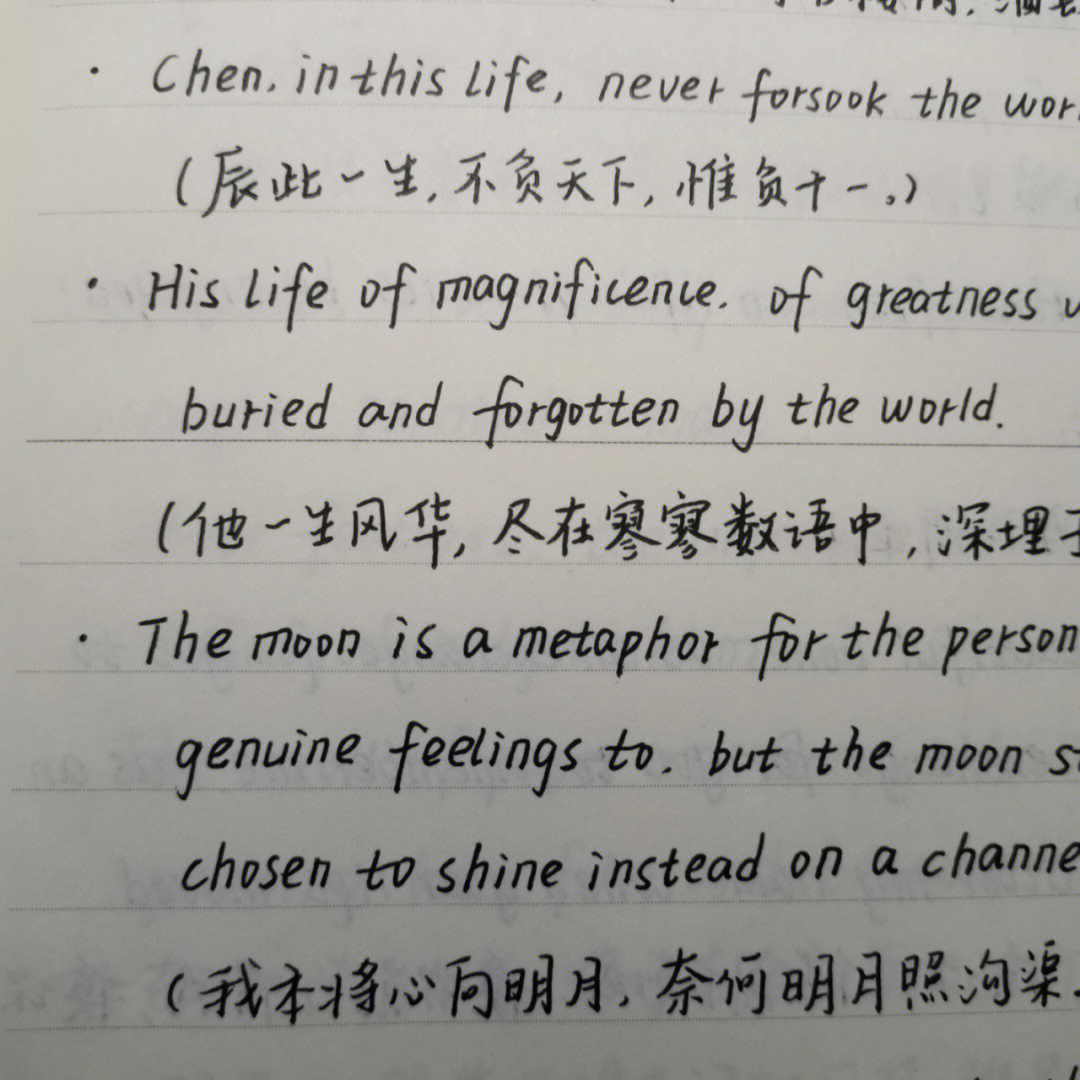 · Chen, in this life, never forsook the wor
(辰此一生,不负天下,惟负十一。)
· His life of magnificence. of greatness
buried and forgotten by the world.
(他一生风华,尽在寥寥数语中,深埋于
· The moon is a metaphor for the person
genuine feelings to. but the moon
chosen to shine instead on a channe
(我本将心向明月,奈何明月照沟渠.